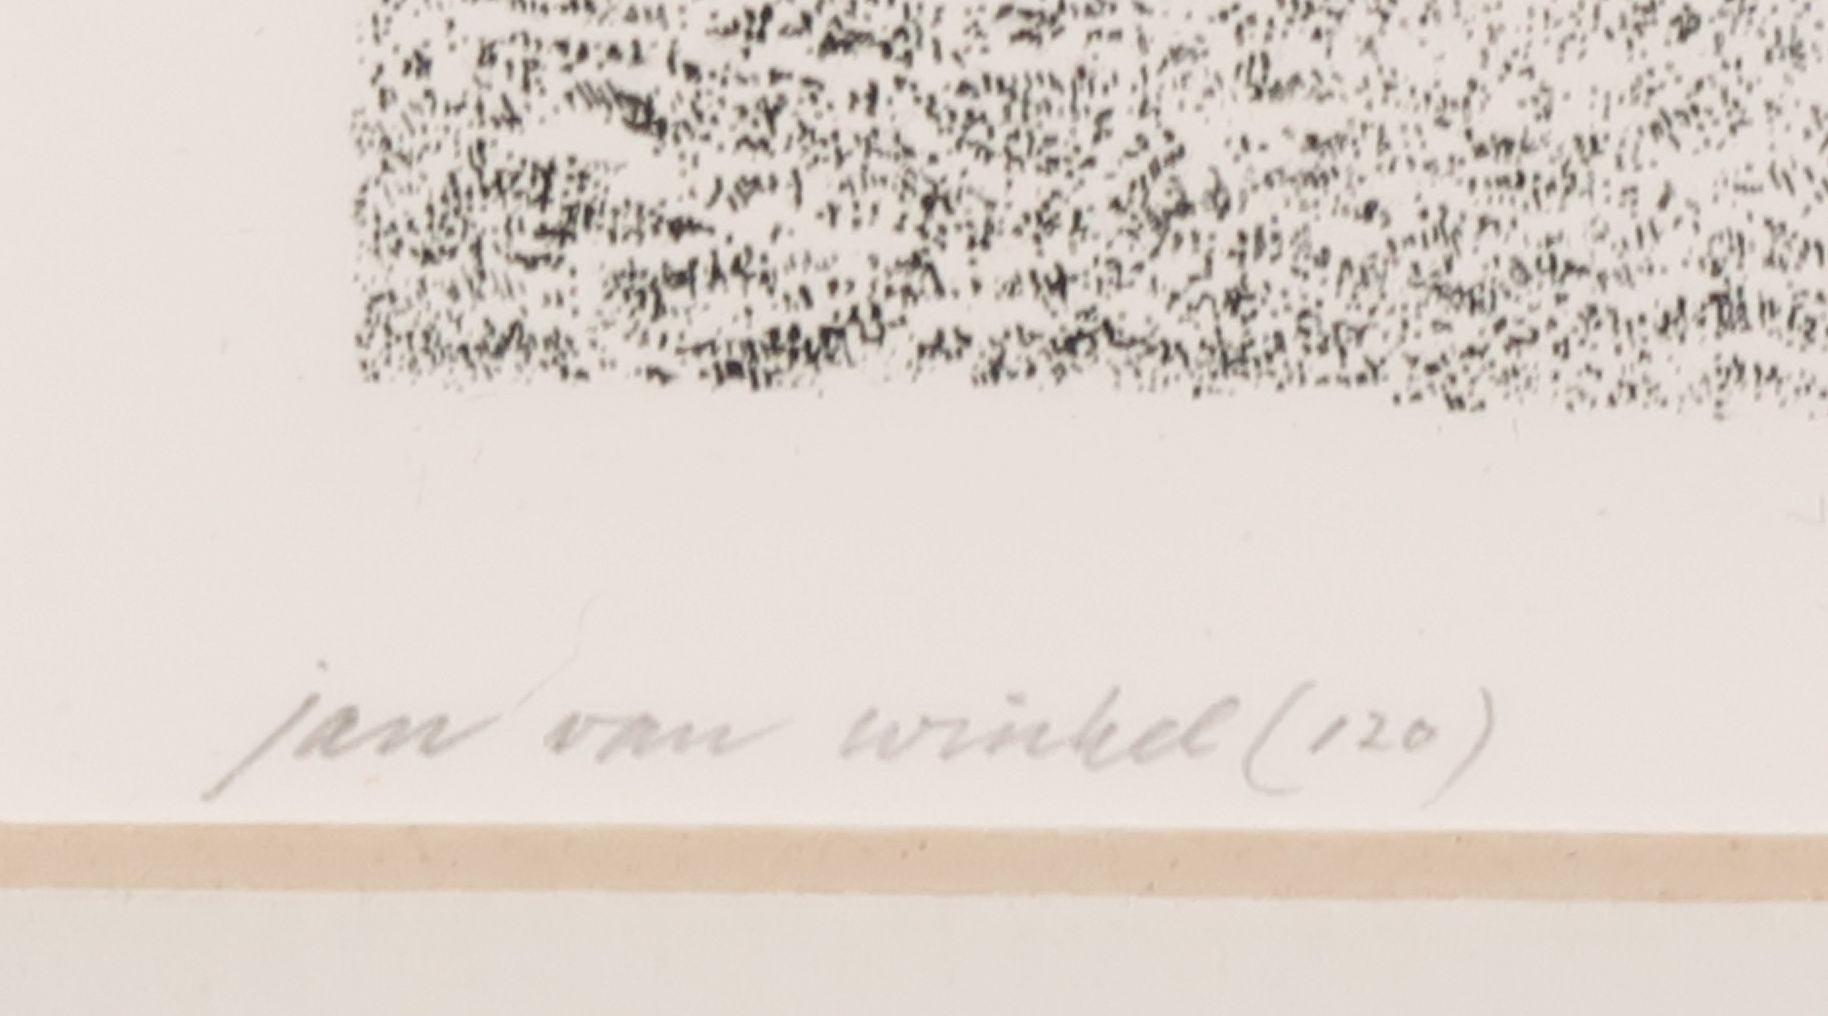 jan van winkel (120)